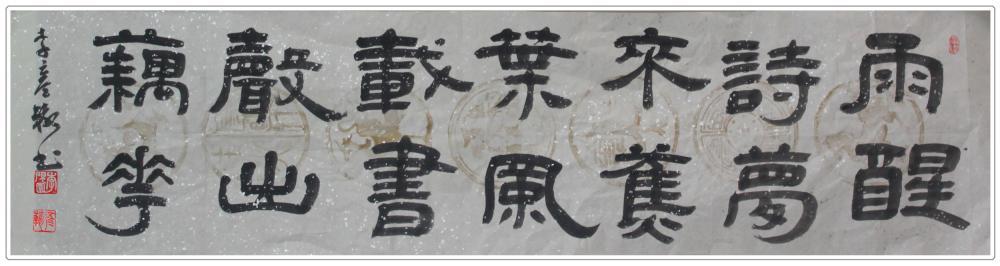 雨醒
詩夢
來蕉
葉風
載書
聲出
藕花
李彦书